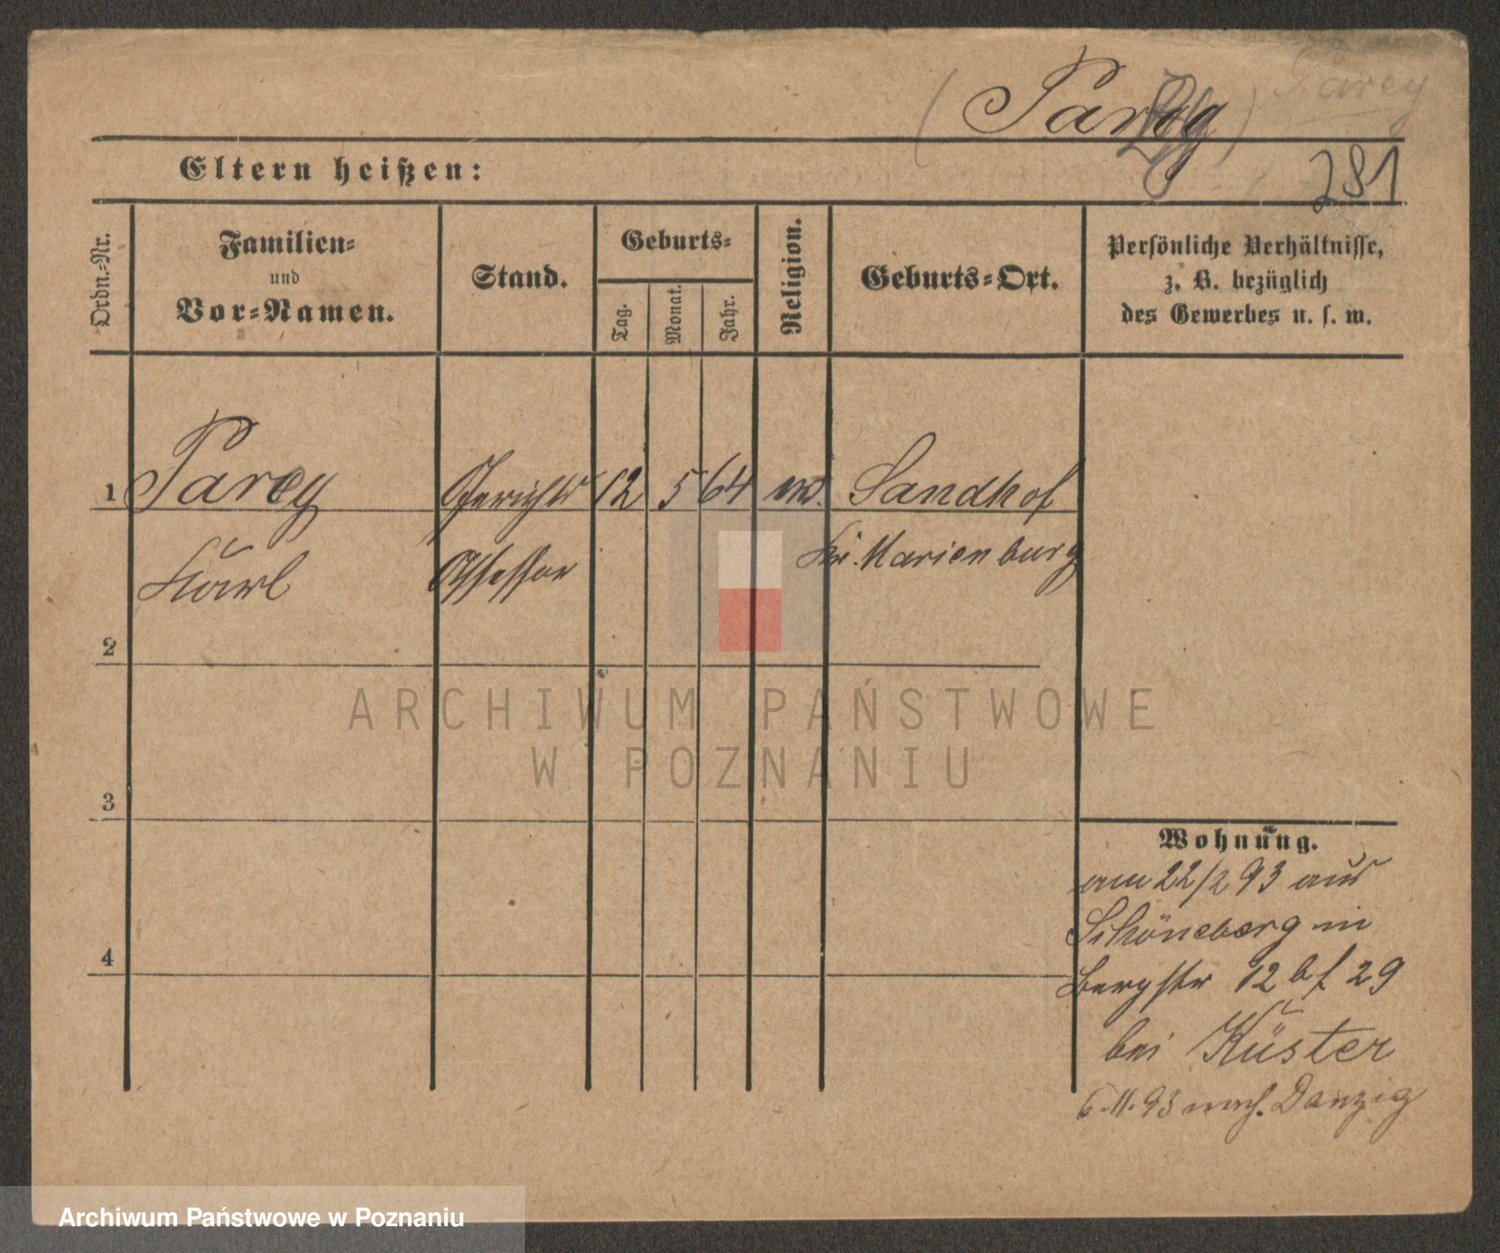 (Parey) Parey
281
Eltern heißen:
Ordn.=Nr.
Familien=
und
Vor=Namen.
Stand.
Geburts=
Tag.
Monat.
Jahr.
Religion.
Geburts=Ort.
Persönliche Verhältnisse,
z. B. bezüglich
des Gewerbes u. s. w.
1 Parey Gerichts 12 5 64 ev. Sandhof
Karl Assessor Kr. Marienburg
2
3
4
Wohnung.
am 22/2 93 aus
Schöneberg in
Bergstr 12 b f 29
bei Küster
6.11.93 nach Danzig
ARCHIWUM PAŃSTWOWE
W POZNANIU
Archiwum Państwowe w Poznaniu